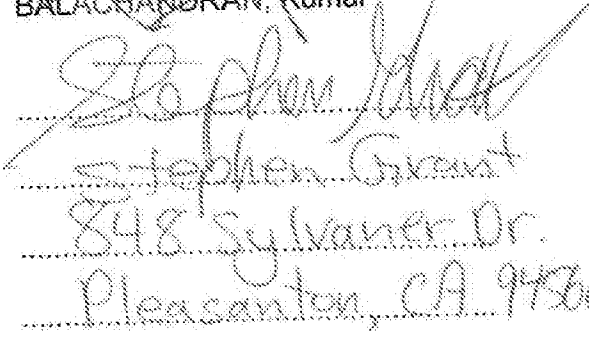 BALACHANDRAN, Kumar
Stephen Grant
Stephen Grant
848 Sylvaner Dr.
Pleasanton, CA 94566